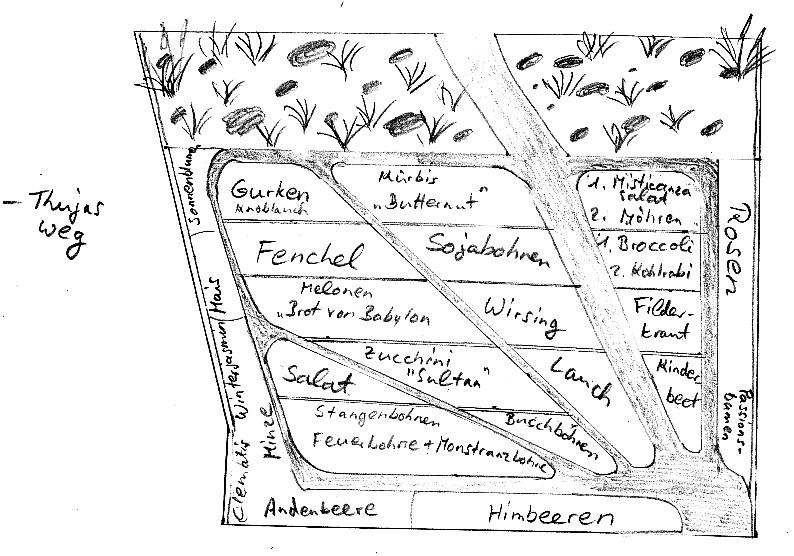 - Thujas
weg
Sonnenblum
Gurken
Knoblauch
Kürbis
„Butternut"
1. Misticanza
Salat
2. Möhren
Rosen
Fenchel
Sojabohnen
1. Broccoli
2. Kohlrabi
Mais
Melonen
„Brot von Babylon
Wirsing
Filder-
kraut
Winterjasmin
Zucchini
"Sultan"
Salat
Lauch
Kinder
beet
Passions-
blumen
Stangenbohnen
Feuerbohne + Monstranzbohne
Buschbohnen
Minze
Clematis
Andenbeere
Himbeeren